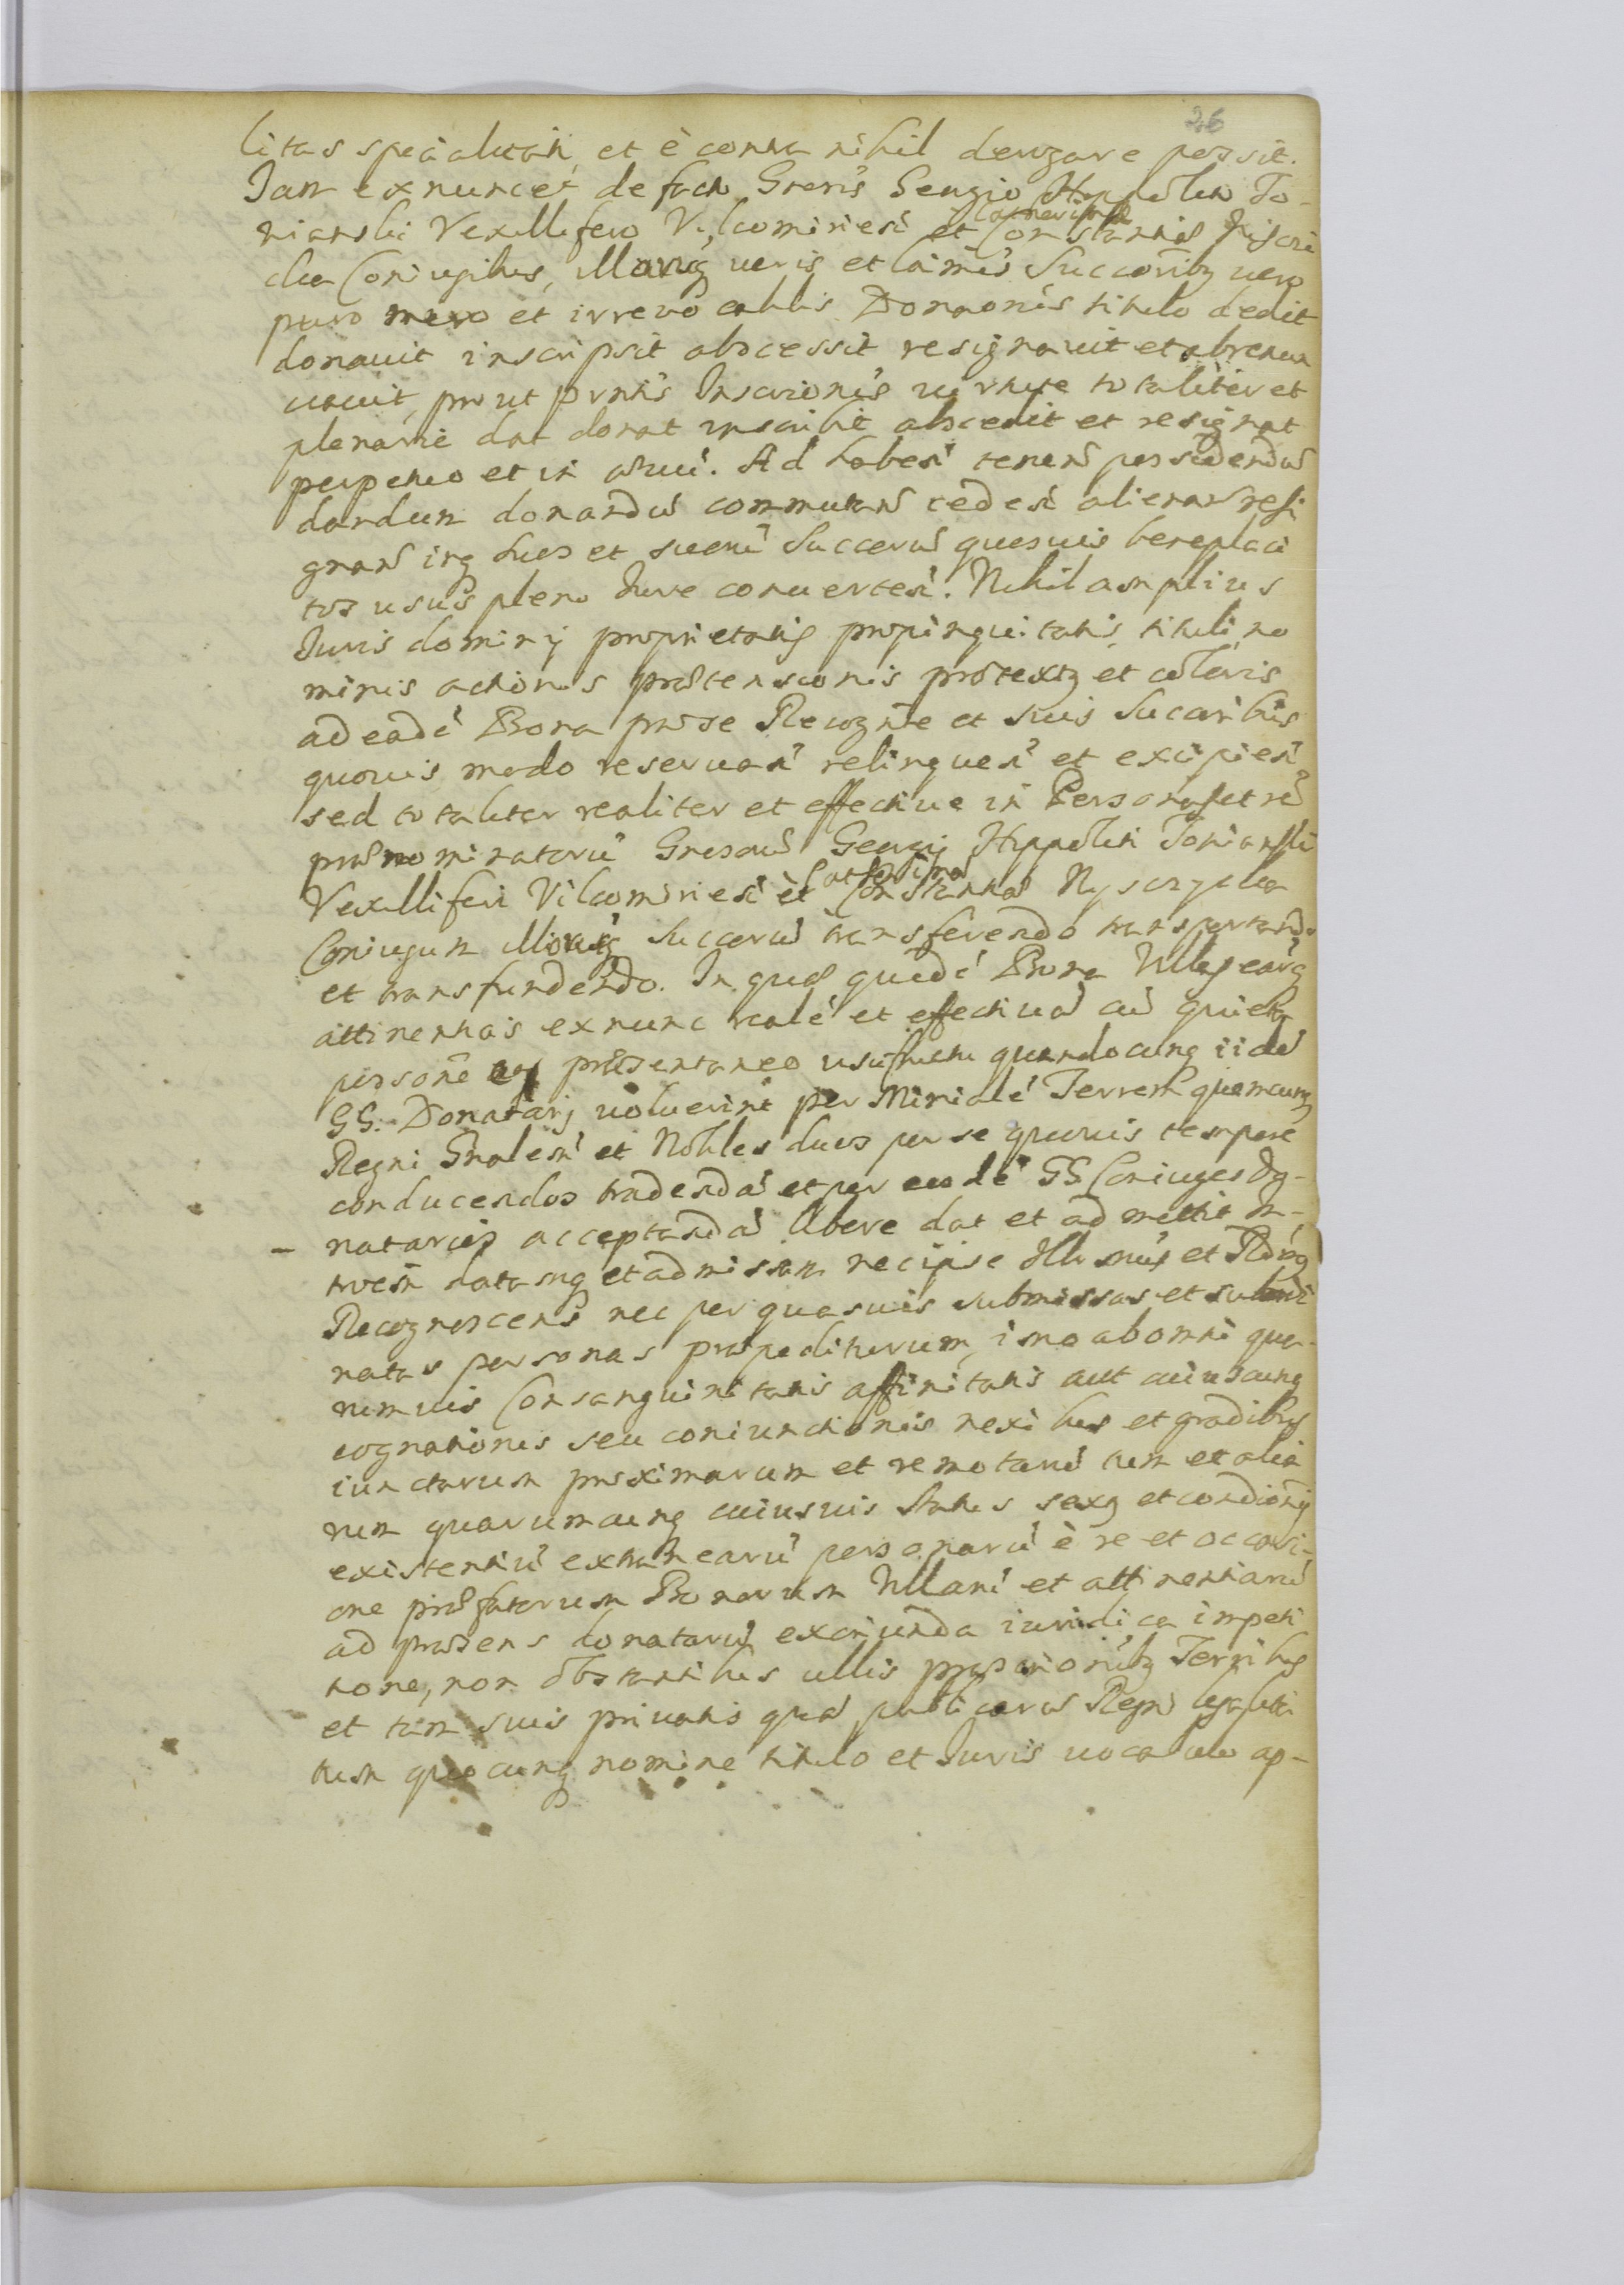 26
litas specialitati, et è contra nihil derogare possit.
Jam ex nunc et de facto Grosis Georgio Hyppolito To-
nianski Vexillifero Vilcomiriesi et Constantia
Catharina
Coniugibus, Illorūq veris et ltimis Succoribq vero
puro mero et irrevocabilis Donaonis titulo dedit
donauit inscripsit abscessit resignavit et abrenun
ciauit, prout pntis Inscrionis virtute totaliter et
plenarie dat donat inscribit abscedit et resignat
perpetuo et in æuū. Ad habesā tenenā possidendū
dandum donandū commutanā cedesā alienanā resi
gnanā inq suos et suorū Succorū quosuis beneplaci
tos usus pleno Jure conuertesā. Nihil amplius
Juris dominij proprietatis propinquitatis tituli no
minis actionis prætensionis prætextq et cōloris
ad eadē Bona pro se Recognte et suis Succoribus
quouis modo reseruasā relinquesā et excipiesā
sed totaliter realiter et effectiue in Personas et rē
prænominatorū Grosorū Georgij Hyppoliti Tonianski
Vexilliferi Vilcomiriesi et Constantiæ
Catharinæ
Coniugum Illorūq Succorū transferendo transportando
et transfundendo. In quæ quidē Bona Villas earq
attinentias ex nunc realē et effectiuā cū quieta
possone ac præsentaneo usufructu quandocunq iidē
GG. Donatarij uoluerint per Minialē Terrestr quemcunq
Regni Gnalem et Nobiles duos per se quouis tempore
conducendos tradendā et per eosdē GG Coniuges Do-
natarios acceptandā libere dat et admittit In-
tromem datamq et admissam nec ipse Illusmus et Rdmq
Recognoscens nec per quasuis submissas et subordi
natas personas præpediturum, imo ab omni quo-
rumuis Consanguinitatis affinitatis aut cuiuscunq
cognationis seu coniunctionis nexibus et gradibus
iunctarum proximarum et remotarū tum et alia
rum quarumcunq cuiusuis status sexq et condionis
existentiū extranearū personarū è re et occasi-
one præfatorum Bonorum Villarū et attinentiarū
ad præsens donatarū exoriunda iuridica impeti
tione, non obstantibus ullis præscrionibq Terribus
et tam suis priuatis quā publicarū Regni
tum quocunq nomine titulo et Juris uocabulo ap-